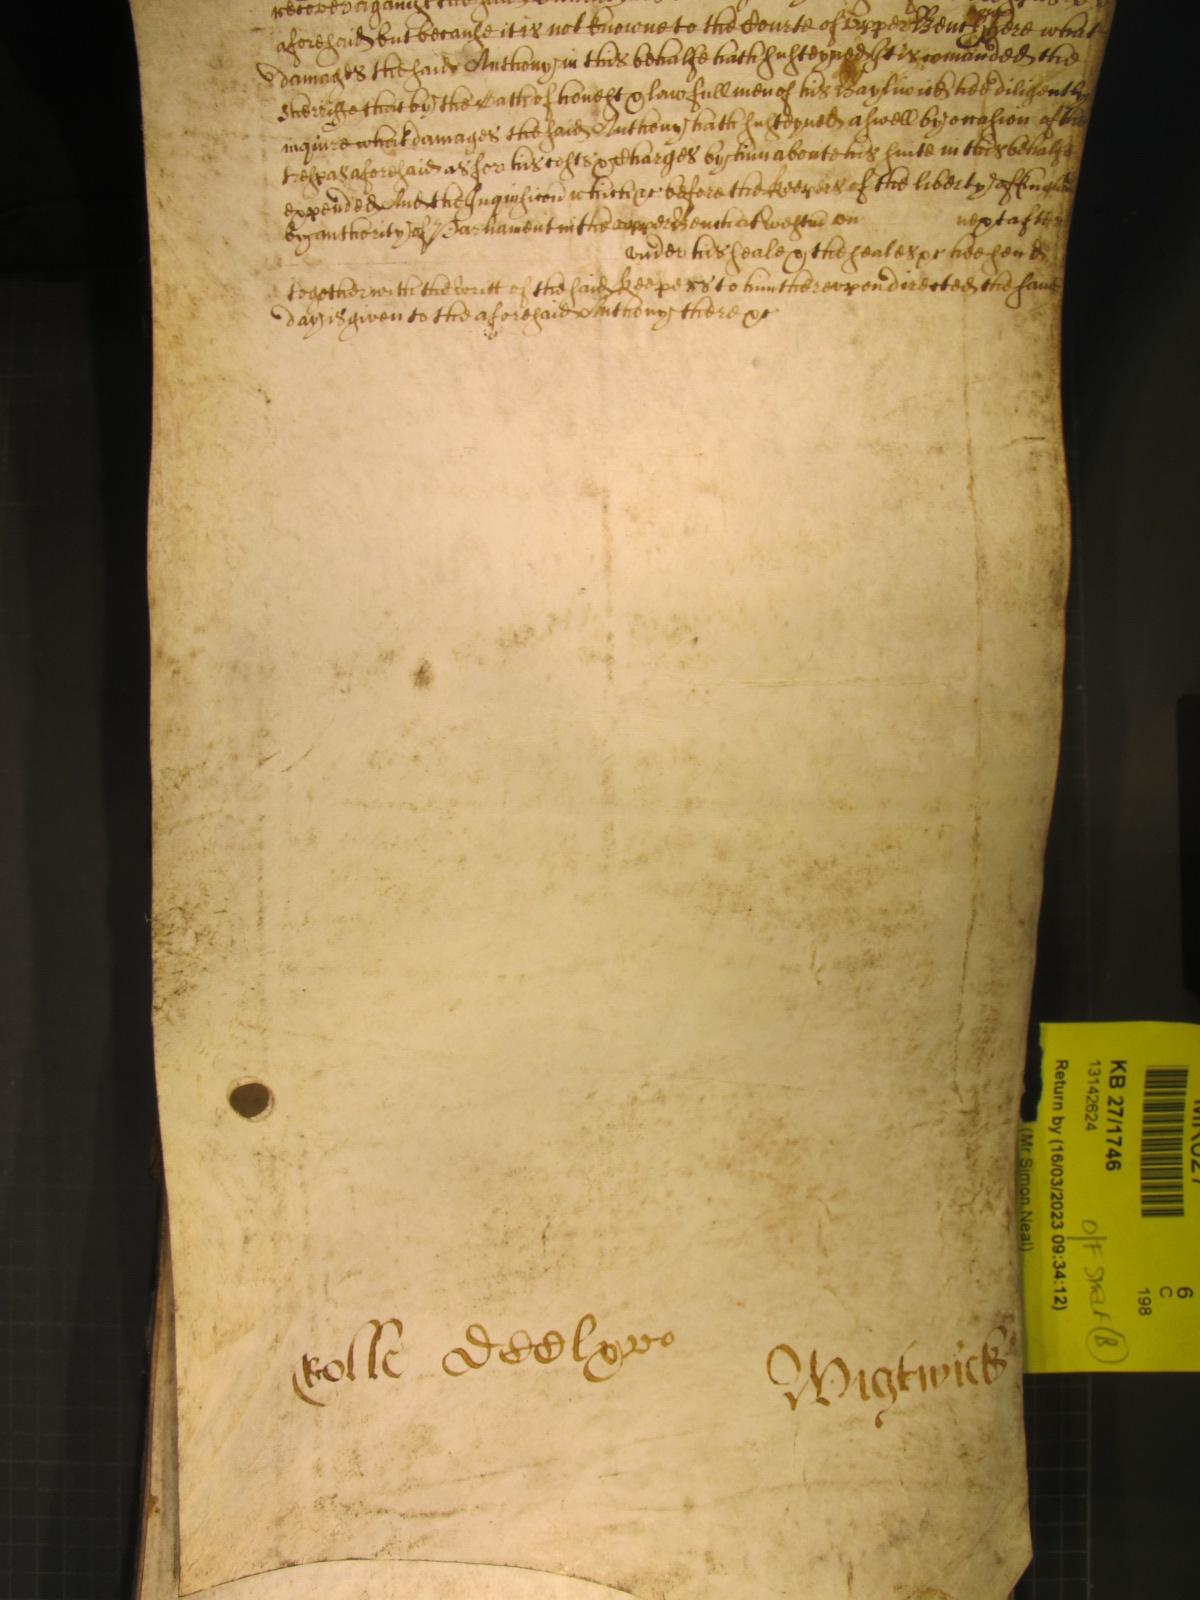 recover against the said
aforesaid but because it is not knowne to the Courte of Upper Bench here what
damages the said Anthony in this behalfe hath susteyned It is comanded the
Sherriffe that by the Oath of honest & lawfull men of his Bayliwick hee diligently
inquire what damages the said Anthony hath susteyned aswell by occasion of the
trespas aforesaid as for his costs & charges by him aboute his suite in this behalfe
expended And the Inquisicon which &c before the keepers of the liberty of England
by authority of Parliament in the upper Bench at Westm̄ on next after
under his seale & the seales &c hee send
together with the writt of the said keepers to him thereupon directed the same
day is given to the aforesaid Anthony there &c
Rolle DCClxxv^o Wightwick
MR027
6
C
198
KB 27/1746
13142624
O/F
Return by (16/03/2023 09:34:12)
(Mr Simon Neal)